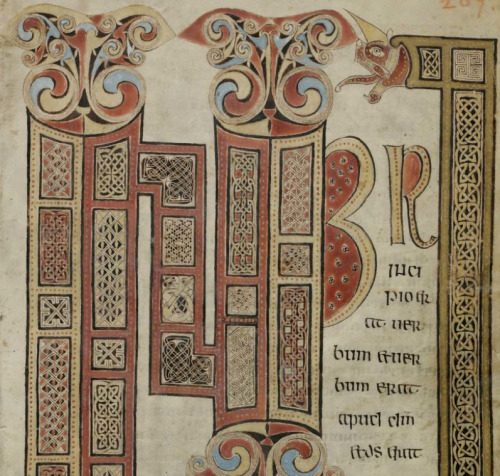 209
INP R
INCI
pio er
at uer
bum et uer
bum erat
apud dm̄
et ds erat